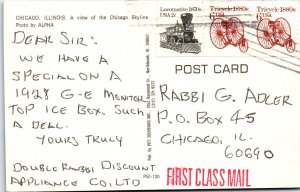 CHICAGO, ILLINOIS. A view of the Chicago Skyline.
Photo by ALPHA
DEAR SIR:
WE HAVE A
SPECIAL ON A
1928 G-E MONITOR
TOP ICE BOX. SUCH
A DEAL.
YOURS TRULY
DOUBLE RABBI DISCOUNT
APPLIANCE CO, LTD
Locomotive 1870s
USA 2c
Tricycle 1880s
6c USA
Tricycle 1880s
6c USA
POST CARD
RABBI G. ADLER
P.O. BOX 45
CHICAGO, IL
60690
FIRST CLASS MAIL